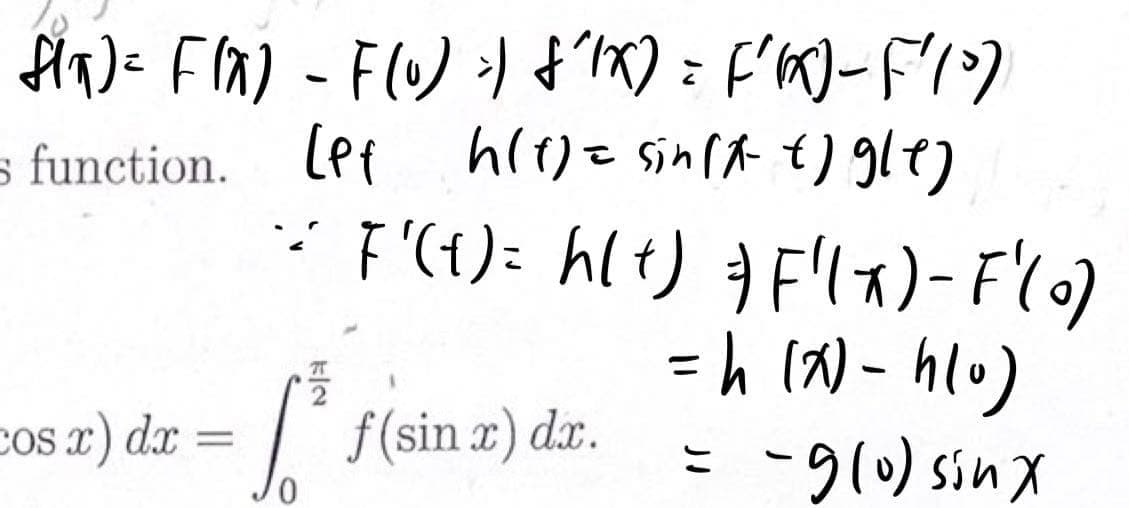 f(x) = F(x) - F(0) ⇒ f'(x) = F'(x) - F'(0)
s function. Let h(t) = sin(x - t) g(t)
∵ F'(t) = h(t) ⇒ F'(x) - F'(0)
= h (x) - h(0)
cos x) dx = ∫₀^{π/2} f(sin x) dx.
= -g(0) sin x